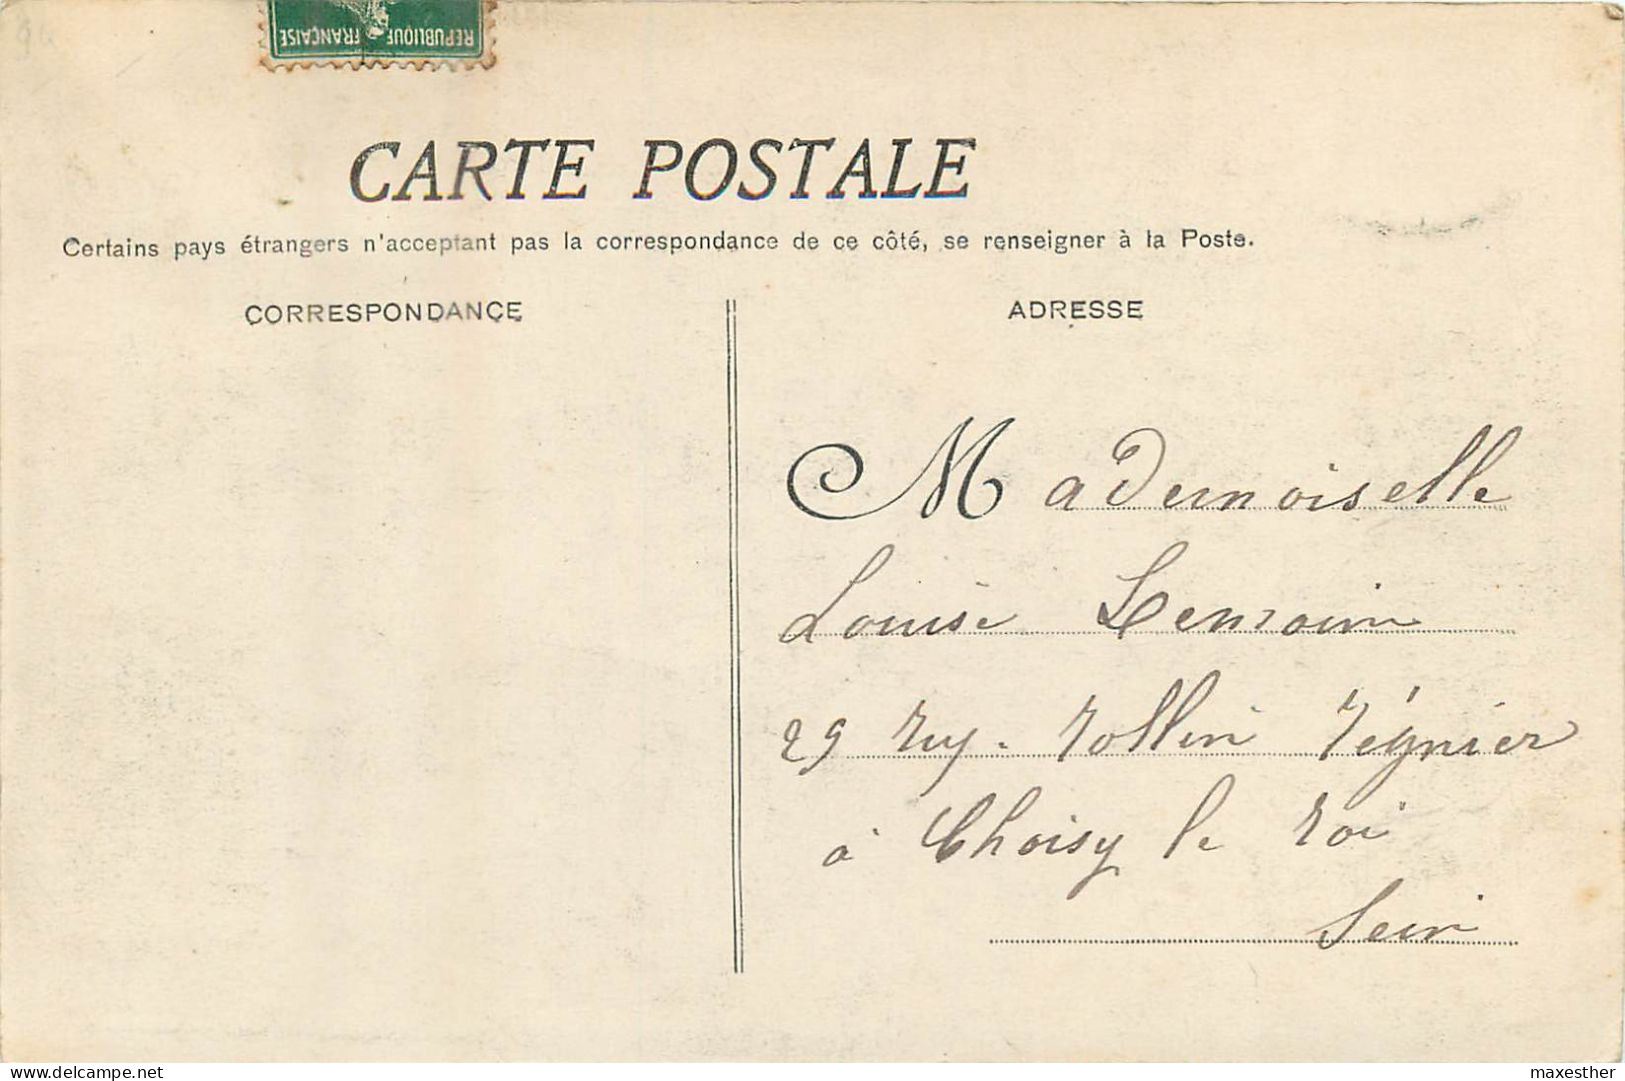 REPUBLIQUE FRANÇAISE
CARTE POSTALE
Certains pays étrangers n'acceptant pas la correspondance de ce côté, se renseigner à la Poste.
CORRESPONDANCE
ADRESSE
Mademoiselle
Louise Lemoine
29 ruy. rollin régnier
à Choisy le roi
Sein
maxesther